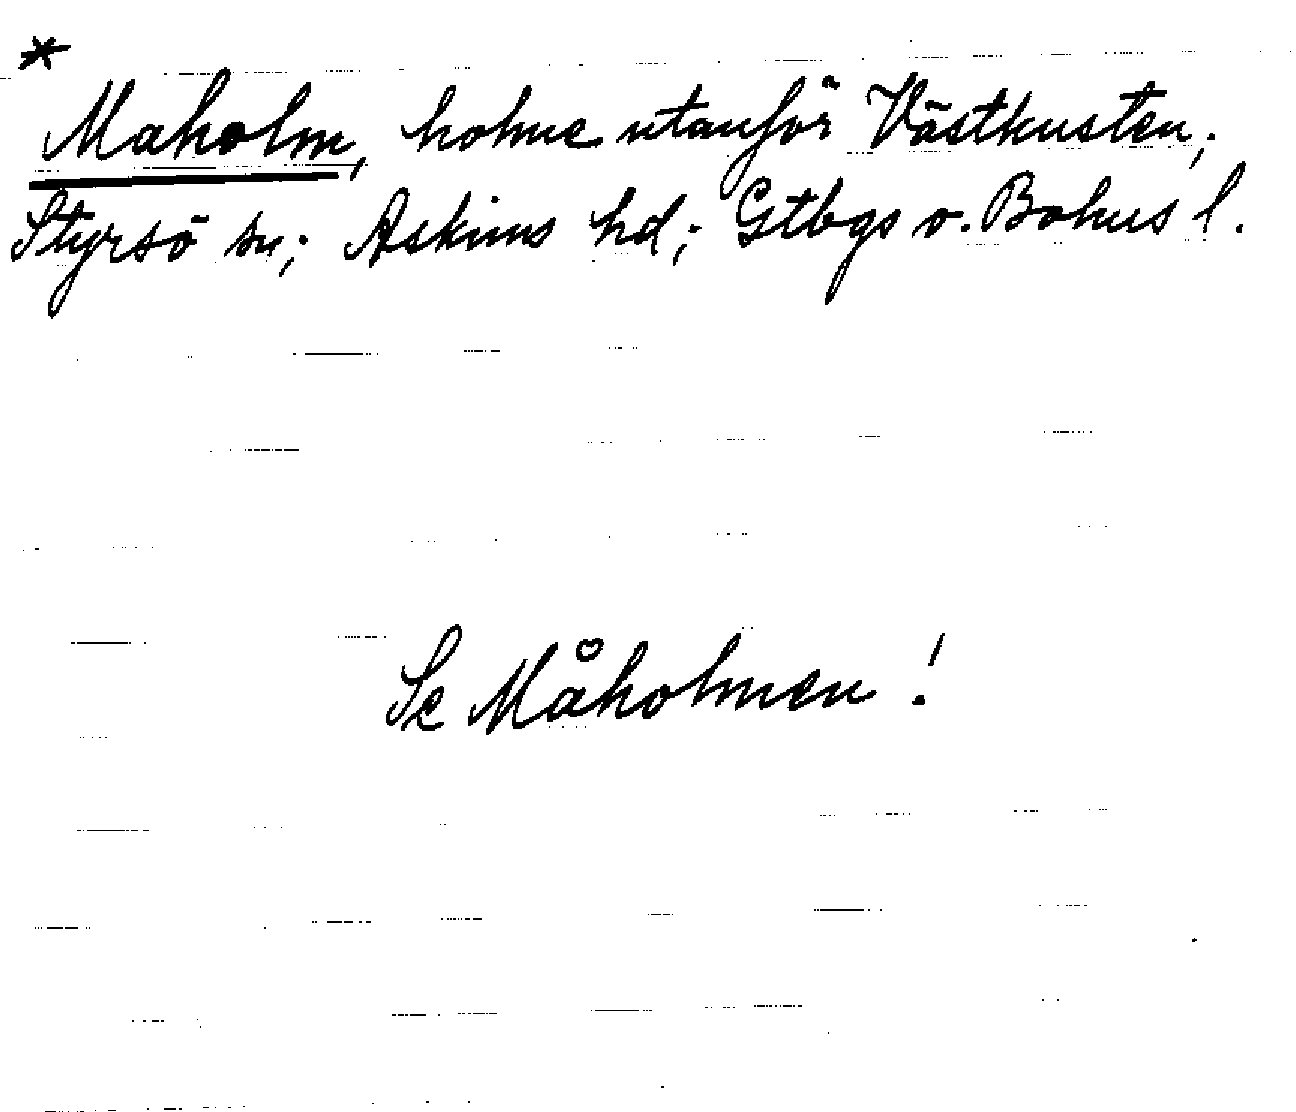 *
Maholm, holme utanför Västkusten;
Styrsö sn; Askims hd; Gtbgs o. Bohus l.
Se Måholmen!